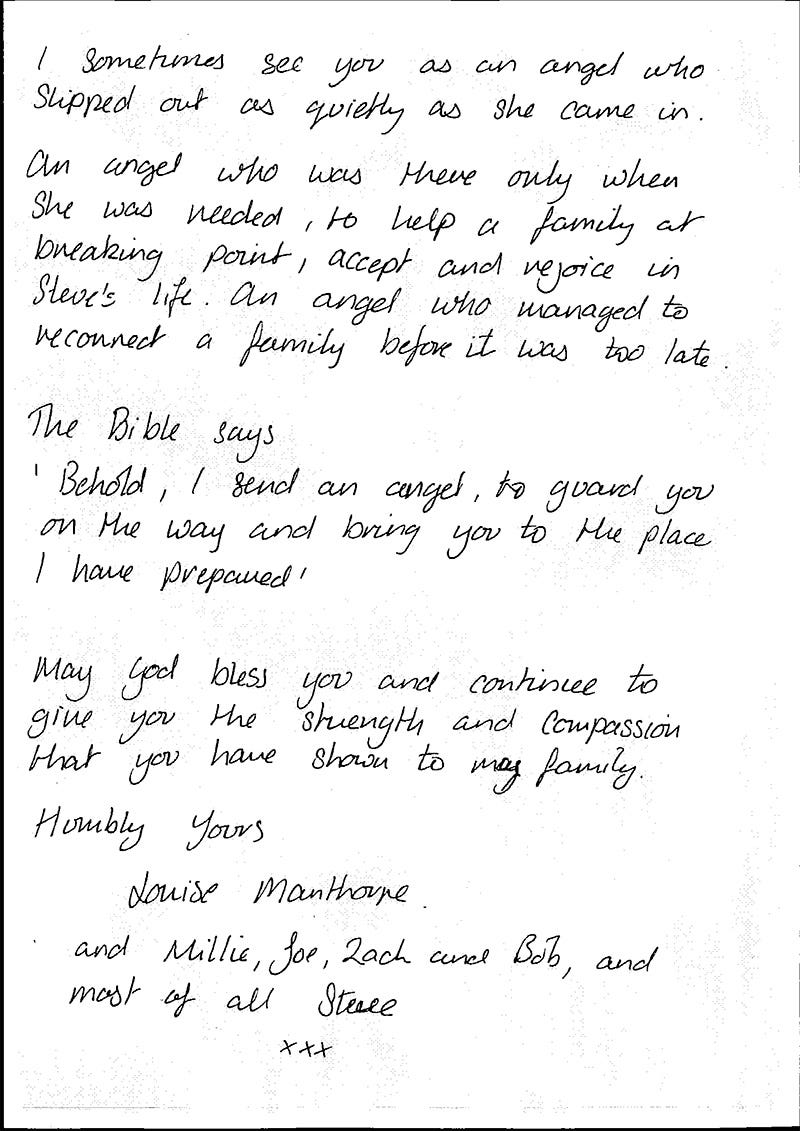 I sometimes see you as an angel who
slipped out as quietly as she came in.
An angel who was there only when
she was needed, to help a family at
breaking point, accept and rejoice in
Steve's life. An angel who managed to
reconnect a family before it was too late.
The Bible says
'Behold, I send an angel, to guard you
on the way and bring you to the place
I have prepared'
May God bless you and continue to
give you the strength and compassion
that you have shown to my family.
Humbly Yours
Louise Manthorpe.
and Millie, Joe, Zach and Bob, and
most of all Steve
xxx